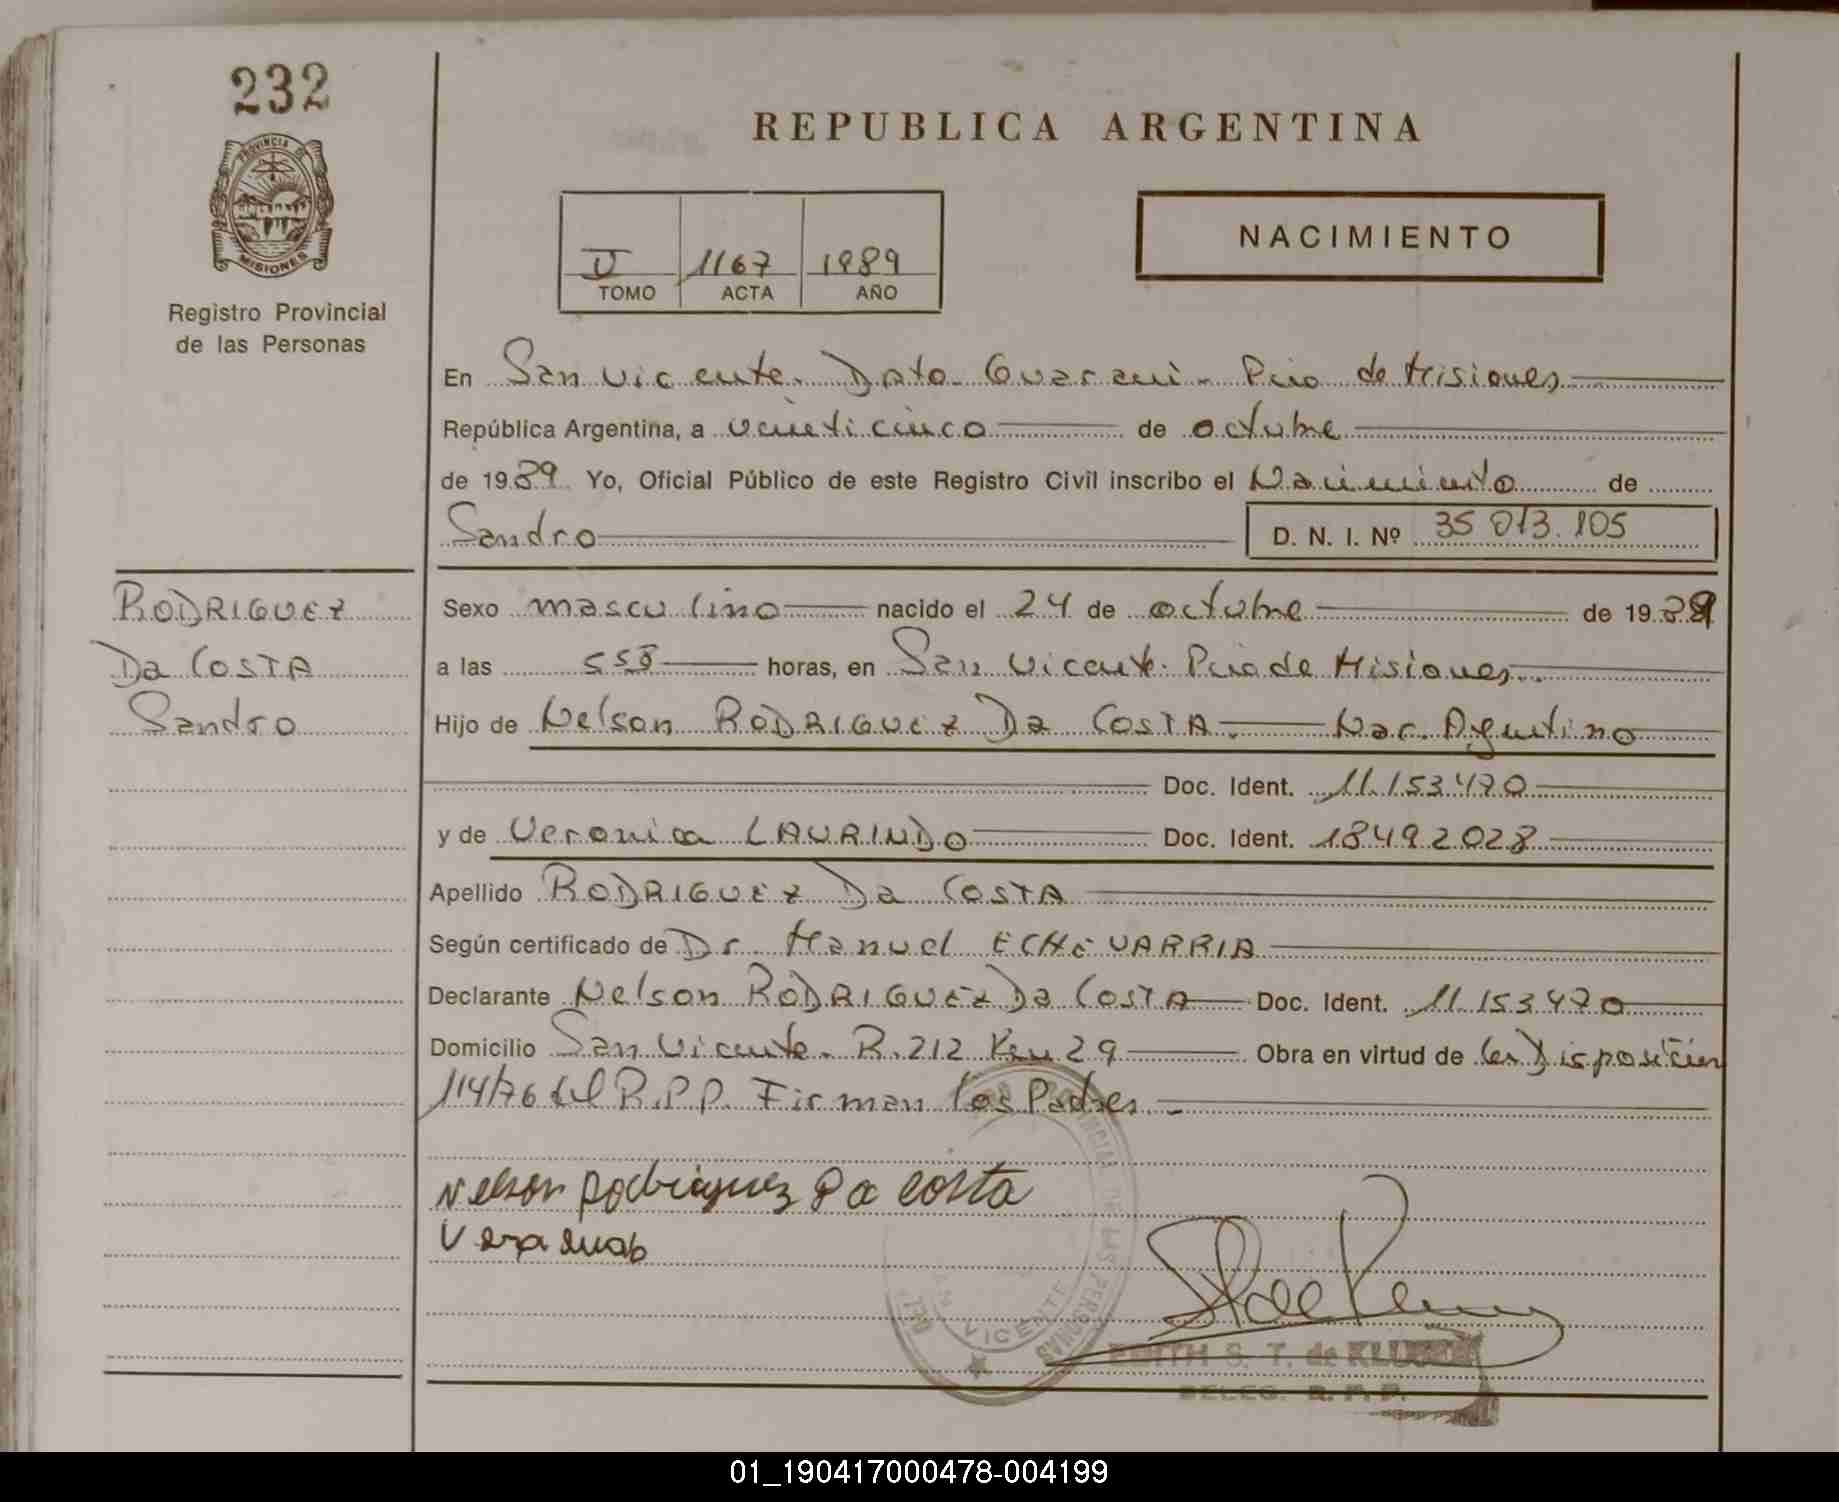 232
PROVINCIA DE
MISIONES
Registro Provincial
de las Personas
REPUBLICA ARGENTINA
NACIMIENTO
V 1167 1989
TOMO ACTA AÑO
En San Vicente. Dpto. Guarani. Pcia de Misiones
República Argentina, a veinticinco de octubre
de 1989 Yo, Oficial Público de este Registro Civil inscribo el Nacimiento de
Sandro D. N. I. Nº 35 013.105
RODRIGUEZ
Da COSTA
Sandro
Sexo masculino nacido el 24 de octubre de 1989
a las 5 horas, en San Vicente. Pcia de Misiones
Hijo de Nelson RODRIGUEZ Da COSTA. Nac. Argentino
Doc. Ident. 11.153470
y de Veronica LAURINDO Doc. Ident. 18492028
Apellido RODRIGUEZ Da COSTA
Según certificado de Dr. Manuel ECHEVARRIA
Declarante Nelson RODRIGUEZ Da COSTA Doc. Ident. 11.153470
Domicilio San Vicente. R. 212 Km 29 Obra en virtud de la Disposición
114/76 del R.P.P. Firman los Padres.-
Nelson Rodriguez Da Costa
VICENTE
EDITH S. T. de
DELEG. R. P. P.
01_190417000478-004199